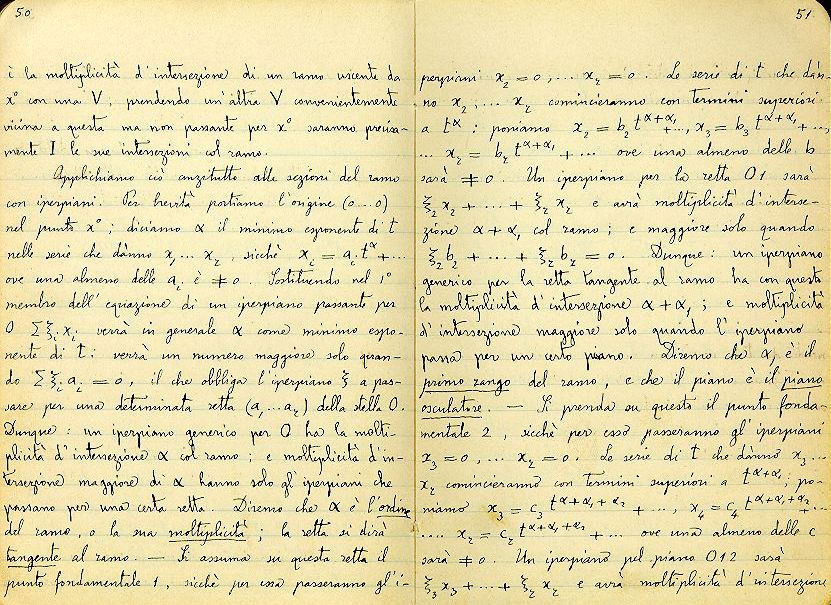 50
è la moltiplicità d'intersezione di un ramo uscente da
x° con una V, prendendo un'altra V convenientemente
vicina a questa ma non passante per x° saranno precisa-
mente I le sue intersezioni col ramo.
Applichiamo ciò anzitutto alle sezioni del ramo
con iperpiani. Per brevità portiamo l'origine (0...0)
nel punto x°; diciamo α il minimo esponente di t
nelle serie che dànno x₁... x_r, sicchè x_i = a_i t^α + ...
ove una almeno delle a_i è ≠ 0. Sostituendo nel 1°
membro dell'equazione di un iperpiano passante per
O Σ ξ_i x_i verrà in generale α come minimo espo-
nente di t: verrà un numero maggiore solo quan-
do Σ ξ_i a_i = 0, il che obbliga l'iperpiano ξ a pas-
sare per una determinata retta (a₁...a_r) della stella O.
Dunque: un iperpiano generico per O ha la molti-
plicità d'intersezione α col ramo; e moltiplicità d'in-
tersezione maggiore di α hanno solo gl'iperpiani che
passano per una certa retta. Diremo che α è l'ordine
del ramo, o la sua moltiplicità; la retta si dirà
tangente al ramo. — Si assuma su questa retta il
punto fondamentale 1, sicchè per essa passeranno gl'i-
51
perpiani x₂ = 0, ... x_r = 0. Le serie di t che dàn-
no x₂, ... x_r comincieranno con termini superiori
a t^α: poniamo x₂ = b₂ t^{α+α₁} + ..., x₃ = b₃ t^{α+α₁} + ...,
... x_r = b_r t^{α+α₁} + ... ove una almeno delle b
sarà ≠ 0. Un iperpiano per la retta 01 sarà
ξ₂ x₂ + ... + ξ_r x_r e avrà moltiplicità d'interse-
zione α + α₁ col ramo; e maggiore solo quando
ξ₂ b₂ + ... + ξ_r b_r = 0. Dunque: un iperpiano
generico per la retta tangente al ramo ha con questo
la moltiplicità d'intersezione α + α₁; e moltiplicità
d'intersezione maggiore solo quando l'iperpiano
passa per un certo piano. Diremo che α₁ è il
primo rango del ramo, e che il piano è il piano
osculatore. — Si prenda su questo il punto fonda-
mentale 2, sicchè per esso passeranno gl'iperpiani
x₃ = 0, ... x_r = 0. Le serie di t che dànno x₃...
x_r comincieranno con termini superiori a t^{α+α₁}; po-
niamo x₃ = c₃ t^{α+α₁+α₂} + ..., x₄ = c₄ t^{α+α₁+α₂} + ...
.... x_r = c_r t^{α+α₁+α₂} + ... ove una almeno delle c
sarà ≠ 0. Un iperpiano pel piano 012 sarà
ξ₃ x₃ + ... + ξ_r x_r e avrà moltiplicità d'intersezione